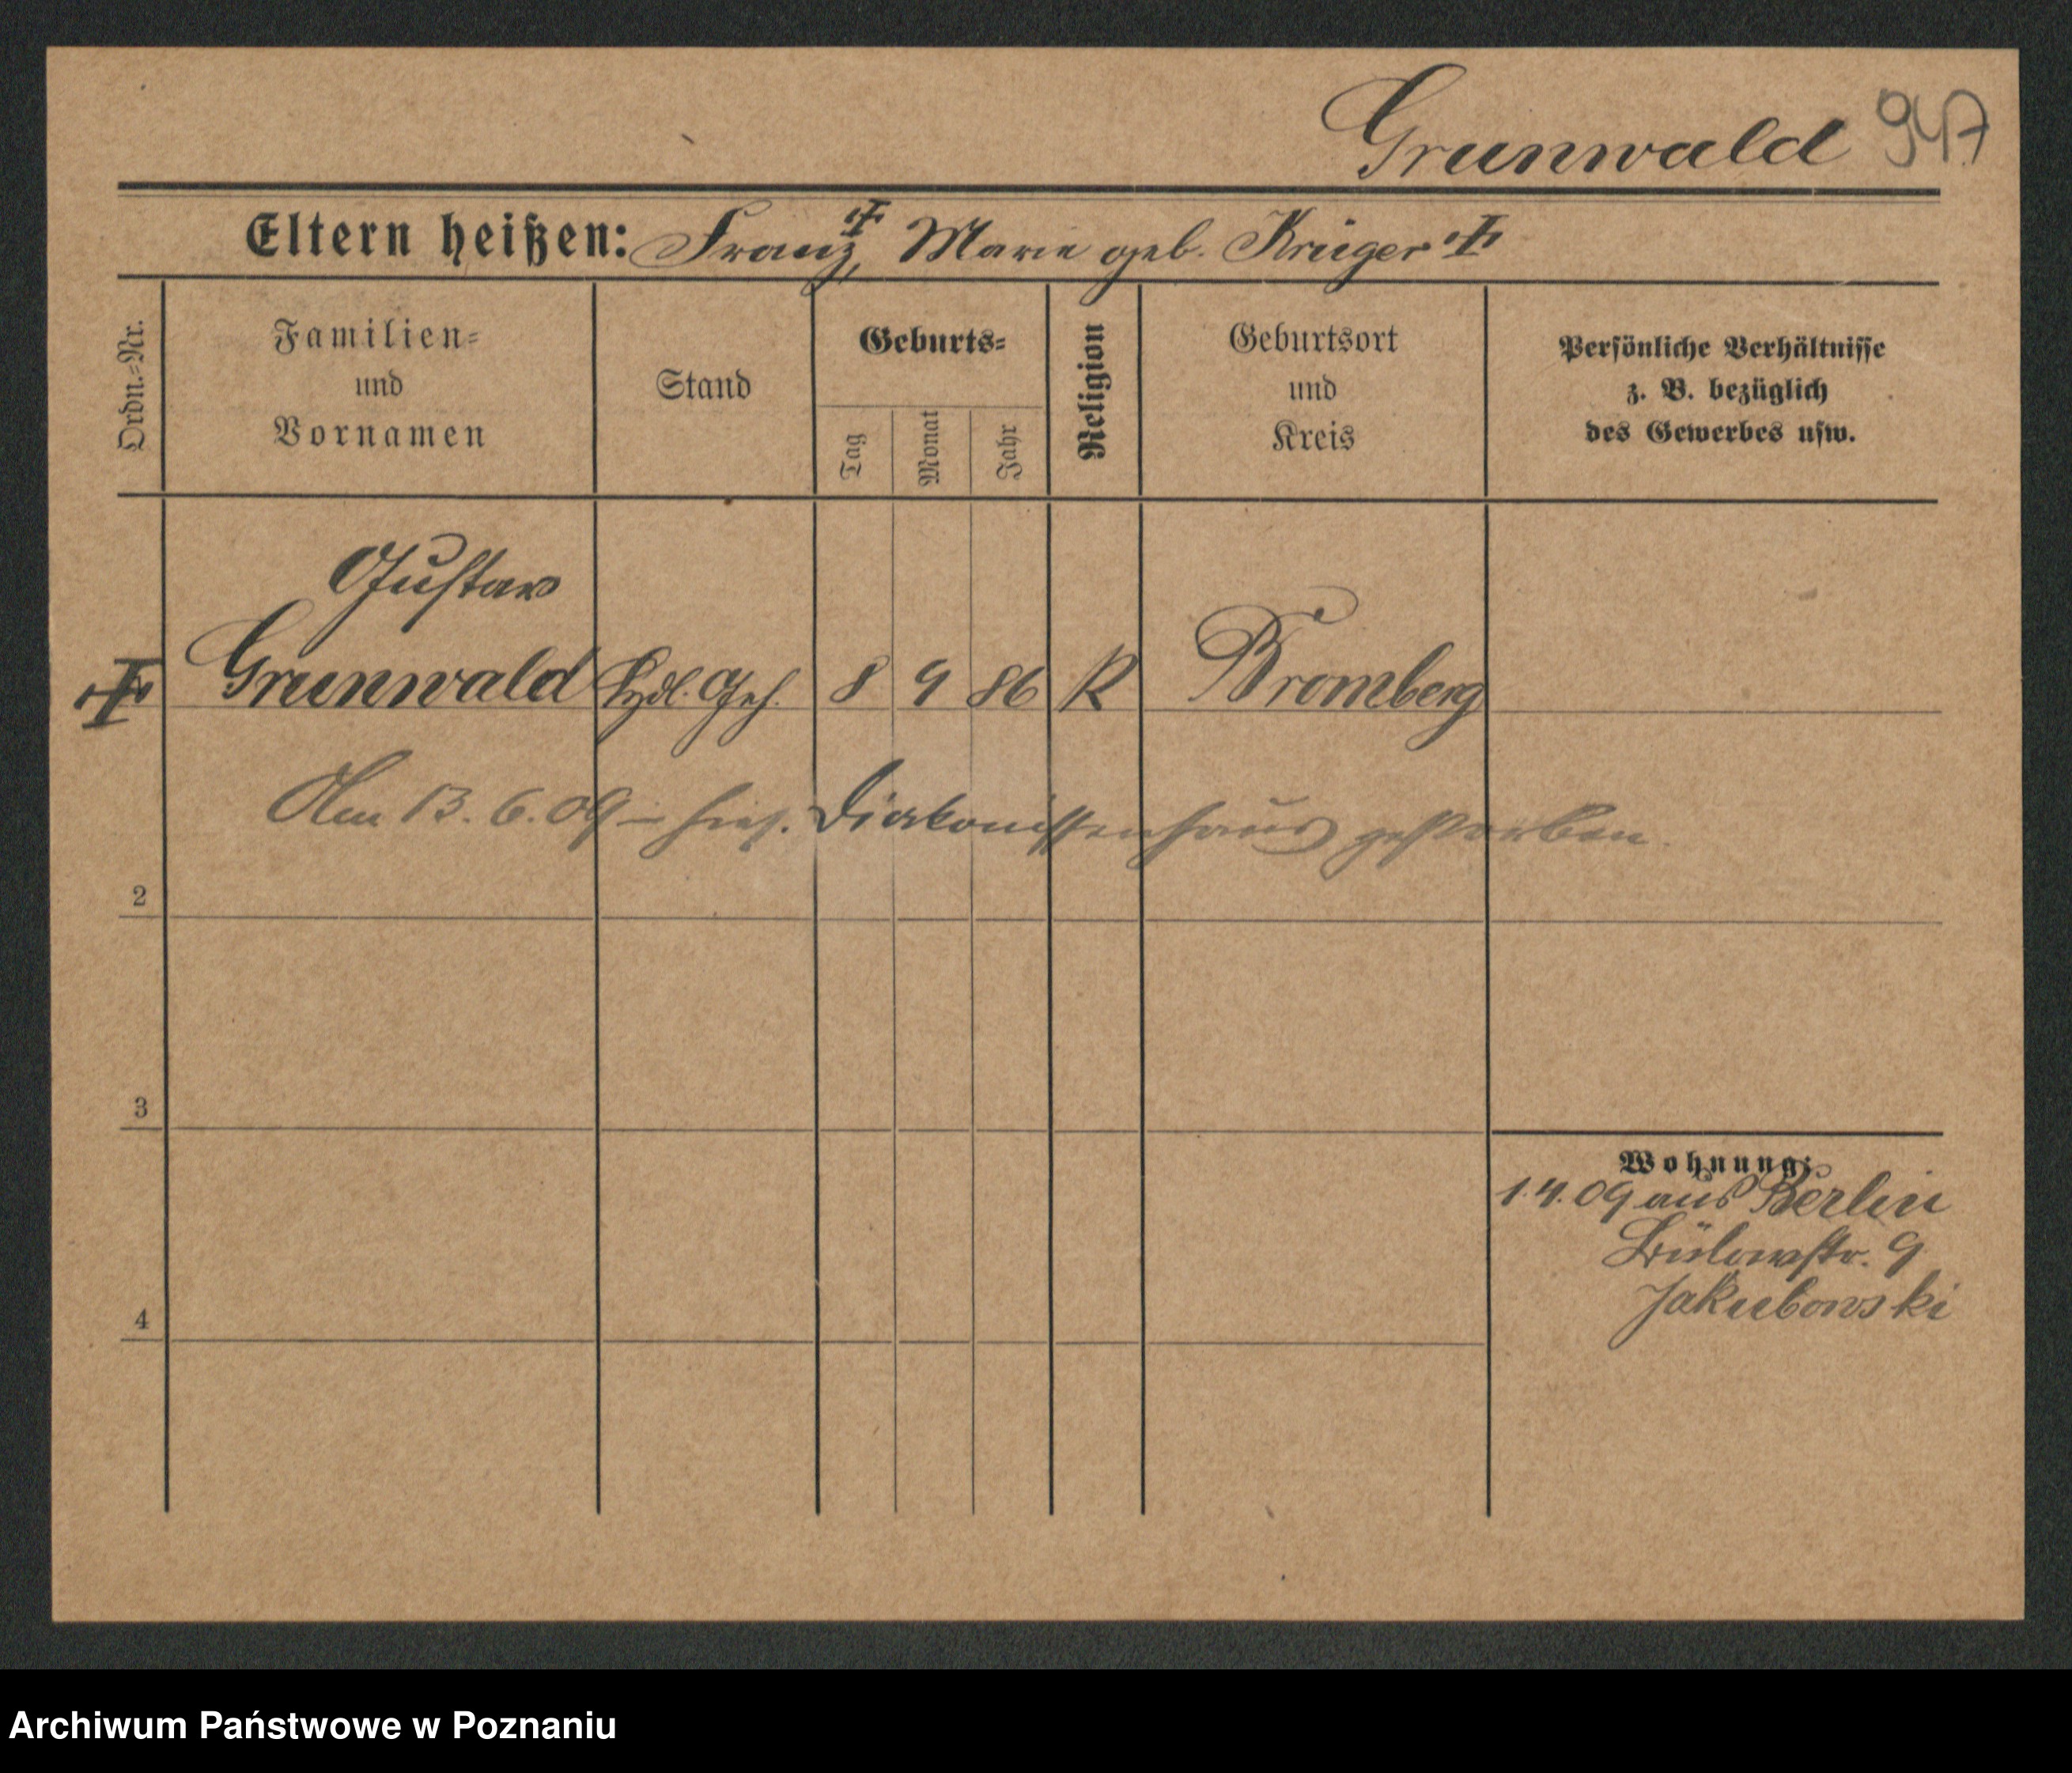 Grunwald 947.
Eltern heißen: Franz ✝, Marie geb. Krüger ✝
Ordn.-Nr.
Familien-
und
Vornamen
Stand
Geburts-
Tag
Monat
Jahr
Religion
Geburtsort
und
Kreis
Persönliche Verhältnisse
z. B. bezüglich
des Gewerbes usw.
Gustav
✝ Grunwald Hdl. Geh. 8 9 86 K Bromberg
Am 13. 6. 09 hies. Diakonissenhaus gestorben.
2
3
Wohnung:
1. 4. 09 aus Berlin
Bülowstr. 9
Jakubowski
4
Archiwum Państwowe w Poznaniu